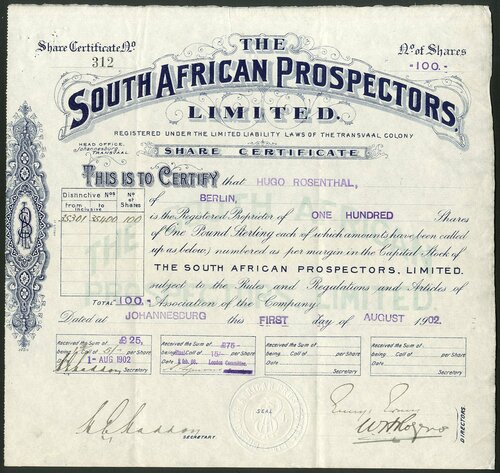 Share Certificate No
312
No of Shares
-100.-
THE
SOUTH AFRICAN PROSPECTORS,
LIMITED.
REGISTERED UNDER THE LIMITED LIABILITY LAWS OF THE TRANSVAAL COLONY
HEAD OFFICE,
Johannesburg,
TRANSVAAL
SHARE CERTIFICATE
THIS IS TO CERTIFY that HUGO ROSENTHAL,
of BERLIN,
Distinctive Nos
No of Shares
From to inclusive
35301 35400 100
is the Registered Proprietor of ONE HUNDRED Shares
of One Pound Sterling each of which amounts have been called
up as below) numbered as per margin in the Capital Stock of
THE SOUTH AFRICAN PROSPECTORS, LIMITED.
subject to the Rules and Regulations and Articles of
TOTAL -100.- Association of the Company
Dated at JOHANNESBURG this FIRST day of AUGUST 1902.
Received the Sum of £25,
being Call of 5/- per Share
Date 1- AUG 1902
Secretary
Received the Sum of £75-
being Call of 15/- per Share
Date London Committee.
Secretary
Received the Sum of
being Call of per Share
Date
Secretary
Received the Sum of
being Call of per Share
Date
Secretary
SECRETARY
SEAL
DIRECTORS